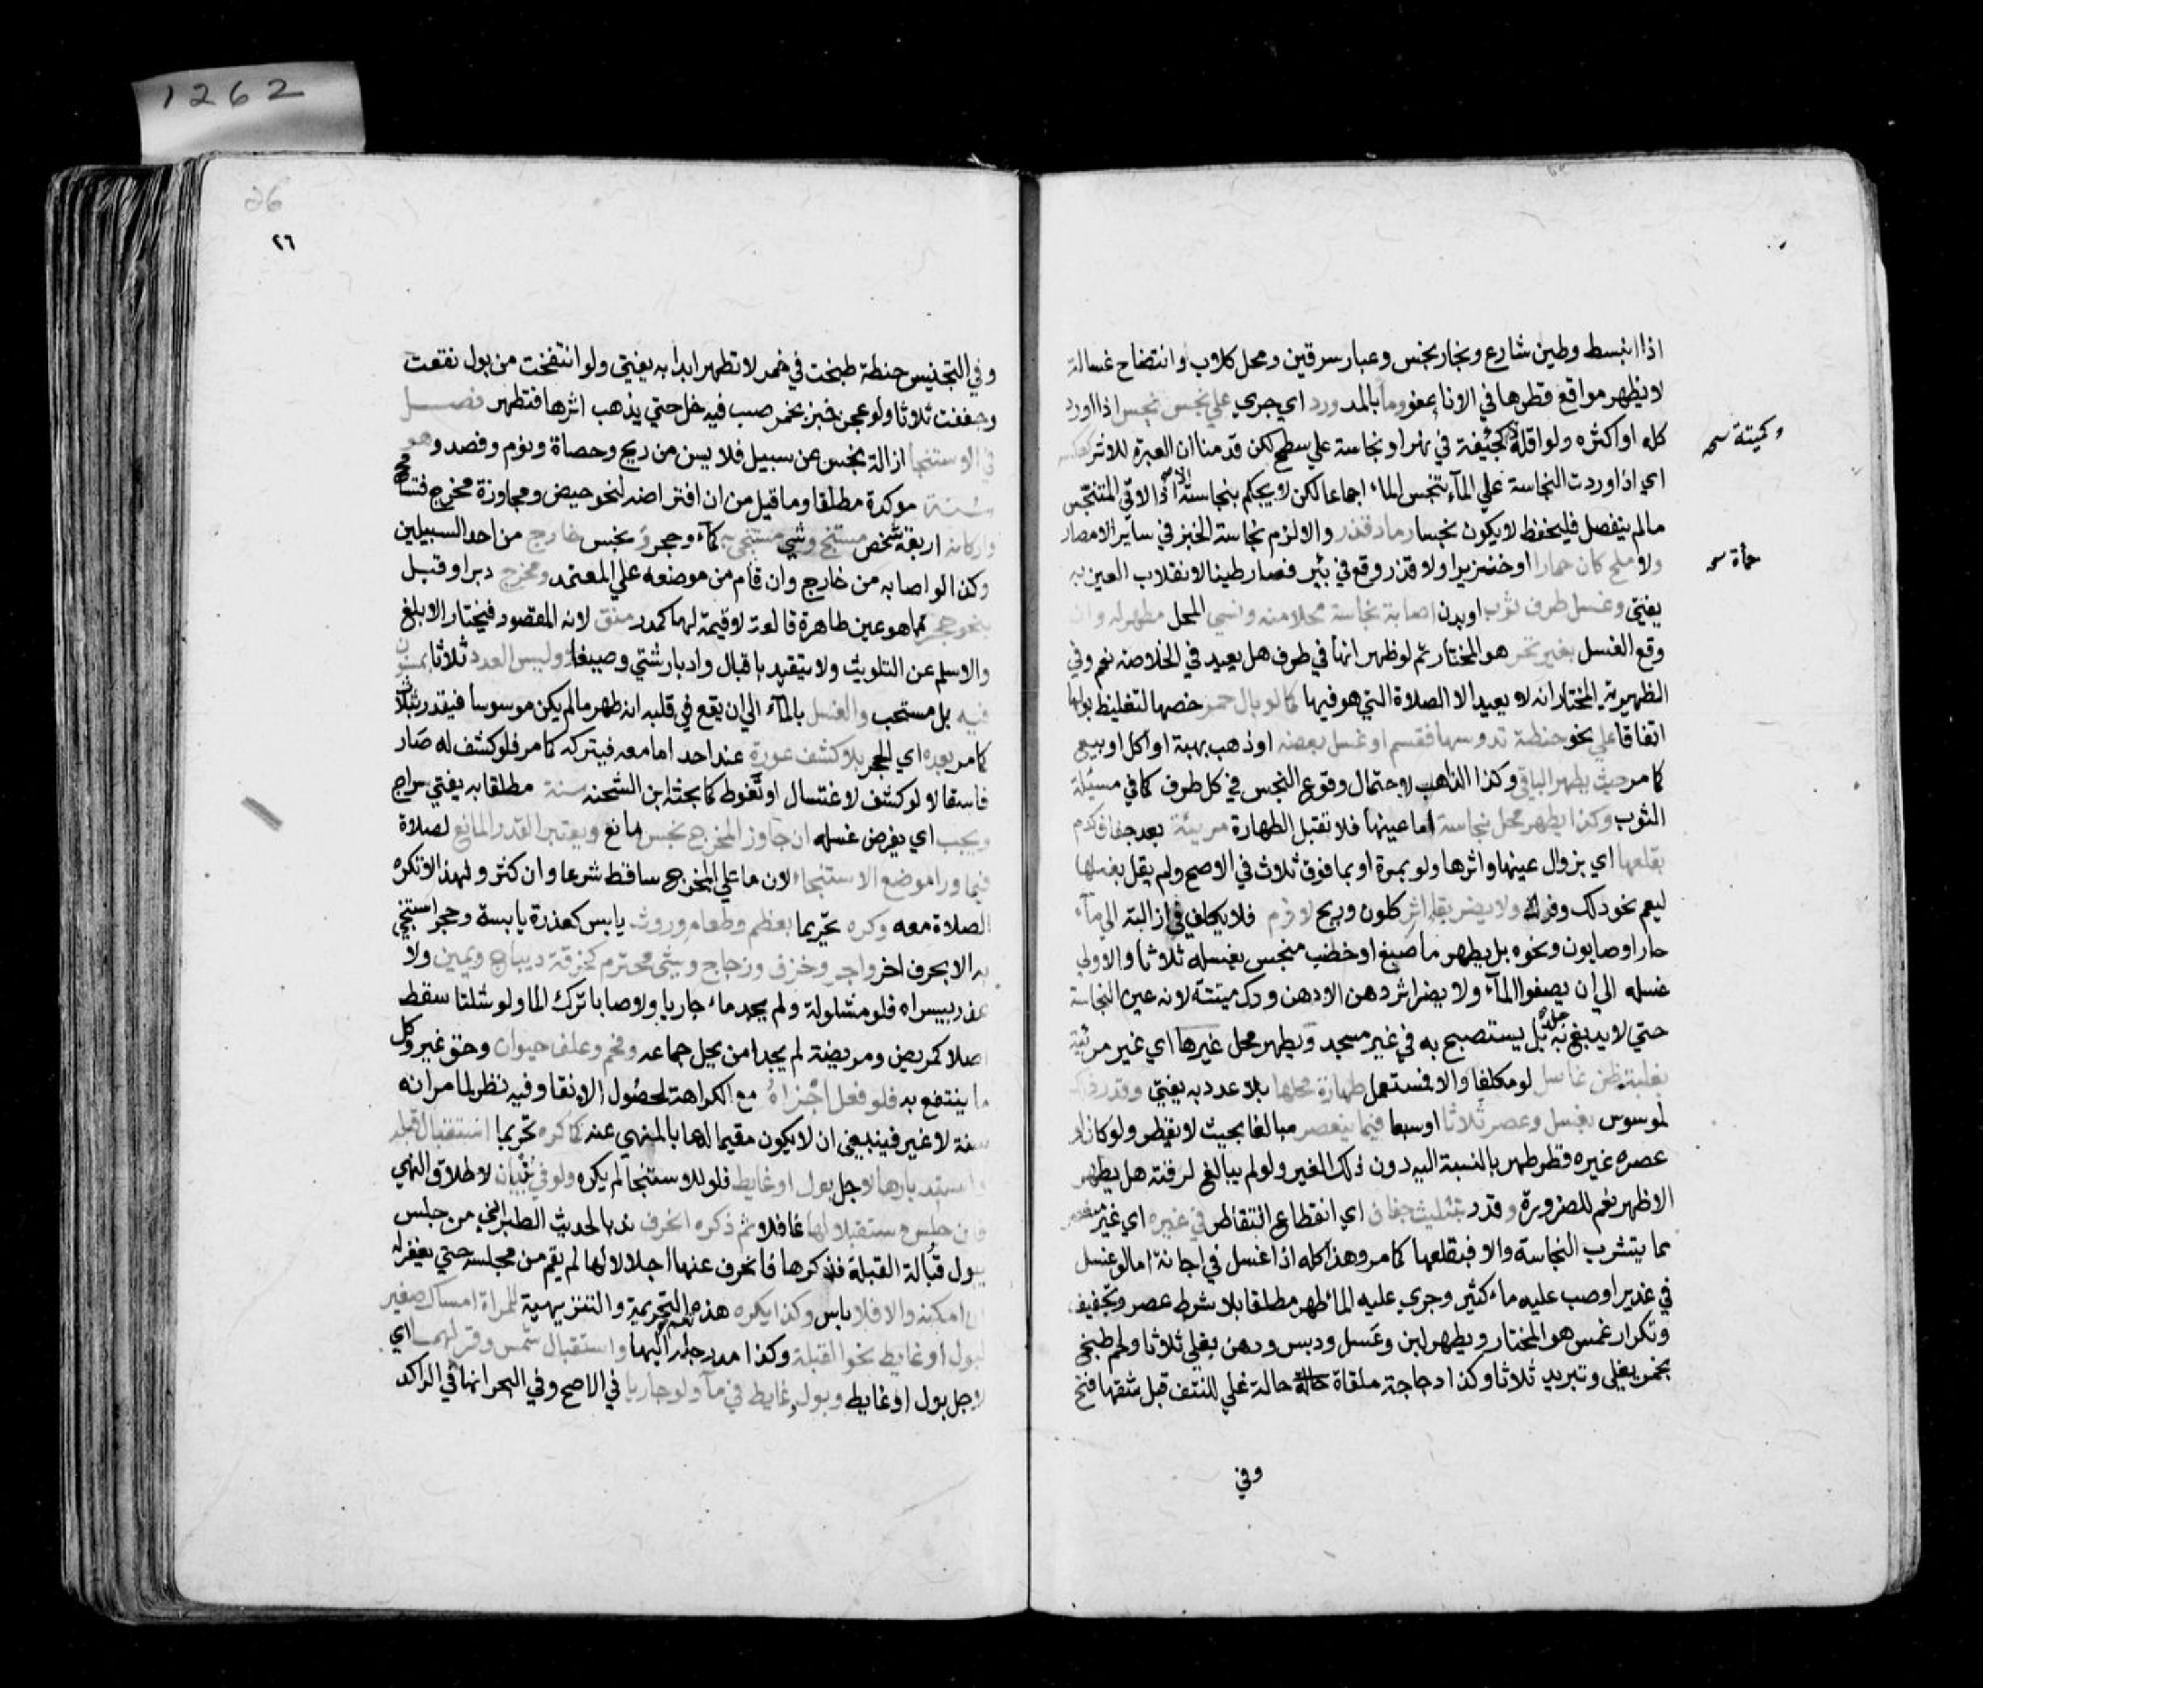 1262
اذا انبسط وطين شارع وبخار نجس وغبار سرقين ومحل كلاب وانتضاح غسالة
لا يظهر مواقع قطرها في الانا يعفو وما بالمد ورد اي جري علي نجس نجس اذا ورد
كله او اكثره ولو اقله كجيفة في نهر او نجاسة علي سطح لكن قدمنا ان العبرة للاثر كعكسه
وكميتة سمح
اي اذا وردت النجاسة علي المآء تنجس الماء اجماعا لكن لا يحكم بنجاسته اذا لاقي المتنجس
مالم ينفصل فليحفظ لا يكون نجسا رماد قذر والا لزم نجاسة الخبز في ساير الامصار
ولا ملح كان حمارا او خنزيرا ولا قذر وقع في بئر فصار طينا لانقلاب العين به
حمأة سمح
يفتي وغسل طرف ثوب او بدن اصابة نجاسة محلا منه ونسي المحل مطهر له وان
وقع الغسل بغير تحر هو المختار ثم لو ظهر انها في طرف هل يعيد في الخلاصه نعم وفي
الظهيرية المختار انه لا يعيد الا الصلاة التي هو فيها كما لو بال حمر خصها لتغليظ بولها
اتفاقا علي نحو حنطة تدوسها فقسم او غسل بعضه او ذهب بهبة او اكل او بيع
كما مر حيث يطهر الباقي وكذا الذاهب لاحتمال وقوع النجس في كل طرف كما في مسئلة
الثوب وكذا يطهر محل نجاسة اما عينها فلا تقبل الطهارة مرييئة بعد جفاف كدم
بقلعها اي بزوال عينها واثرها ولو بمرة او بما فوق ثلاث في الاصح ولم يقل بغسلها
ليعم نحو دلك وفرك ولا يضر بقا اثر كلون وريح لازم فلا يكلف في ازالته الي مآء
حار او صابون ونحوه بل يطهر ما صبغ او خضب منجس بغسله ثلاثا والاولي
غسله الي ان يصفوا المآء ولا يضر اثر دهن الا دهن ودك ميتة لانه عين النجاسة
حتي لا يدبغ به جلد بل يستصبح به في غير مسجد ويطهر محل غيرها اي غير مرئية
بغلبة ظن غاسل لو مكلفا والا فمستعمل طهارة محلها بلا عدد به يفتي وقدر ذلك
لموسوس بغسل وعصر ثلاثا او سبعا فيما ينعصر مبالغا بحيث لا يقطر ولو كان لو
عصره غيره قطر طهر بالنسبة اليه دون ذلك الغير ولو لم يبالغ لرقته هل يطهر
الاظهر نعم للضرورة وقدر بتثليث جفاف اي انقطاع التقاطر في غيره اي غير منعصر
مما يتشرب النجاسة والا فبقلعها كما مر وهذا كله اذا غسل في اجانة اما لو غسل
في غدير او صب عليه ماء كثير وجري عليه الما طهر مطلقا بلا شرط عصر وتجفيف
وتكرار غمس هو المختار ويطهر لبن وعسل ودبس ودهن بغلي ثلاثا ولحم طبخ
بخمر بغلي وتبريد ثلاثا وكذا دجاجة ملقاة حالة حالة غلي للنتف قبل شقها فتح
وفي
26
٢٦
وفي التجنيس حنطة طبخت في خمر لا تطهر ابدا به يفتي ولو انتفخت من بول نقعت
وجففت ثلاثا ولو عجن خبز بخمر صب فيه خل حتي يذهب اثرها فتطهر فصل
في الاستنجا ازالة نجس عن سبيل فلا يسن من ريح وحصاة ونوم وفصد وهو
سنة موكدة مطلقا وما قيل من ان افتراضه لنحو حيض ومجاوزة مخرج فتسامح
واركانه اربعة شخص مستنج وشي مستنجي به كمآء وحجر ونجس خارج من احد السبيلين
وكذا لو اصابه من خارج وان قام من موضعه علي المعتمد ومخرج دبر او قبل
بنحو حجر مما هو عين طاهرة قالعة لا قيمة لها كمدر منق لانه المقصود فيختار الابلغ
والاسلم عن التلويث ولا يتقيد باقبال وادبار شتي وصيفا وليس العدد ثلاثا بمسنون
فيه بل مستحب والغسل بالمآء الي ان يقع في قلبه انه طهر مالم يكن موسوسا فيقدر بثلاث
كما مر بعده اي الحجر بلا كشف عورة عند احد اما معه فيتركه كما مر فلو كشف له صار
فاسقا لا لو كشف لاغتسال او تغوط كما بحثه ابن الشحنه سنة مطلقا به يفتي سراج
ويجب اي يفرض غسله ان جاوز المخرج نجس مانع ويعتبر القدر المانع لصلاة
فيما ورا موضع الاستنجاء لان ما علي المخرج ساقط شرعا وان كثر ولهذا لا تكره
الصلاة معه وكره تحريما بعظم وطعام وروث يابس كعذرة يابسة وحجر استنجي
به الا بحرف اخر واجر وخزف وزجاج وشي محترم كخرقة ديباج ويمين ولا
عذر بيسراه فلو مشلولة ولم يجد ماء جاريا ولا صابا ترك الما ولو شلتا سقط
اصلا كمريض ومريضة لم يجدا من يحل جماعه وفحم وعلف حيوان وحق غير وكل
ما ينتفع به فلو فعل اجزاه مع الكراهة لحصول الانقا وفيه نظر لما مر انه
سنة لا غير فينبغي ان لا يكون مقيما لها بالمنهي عنه كما كره تحريما استقبال قبلة
واستدبارها لاجل بول او غايط فلو للاستنجا لم يكره ولو في بنيان لاطلاق النهي
فان جلس مستقبلا لها غافلا ثم ذكره انحرف ندبا لحديث الطبراني من جلس
يبول قبالة القبلة فذكرها فانحرف عنها اجلالا لها لم يقم من مجلسه حتي يغفر له
ان امكنه والا فلا باس وكذا يكره هذه التحريمة والتنزيهية للمراة امساك صغير
لبول او غايط نحو القبلة وكذا مد رجله اليها واستقبال شمس وقمر لهما اي
لاجل بول او غايط وبول وغايط في مآء ولو جاريا في الاصح وفي البحر انها في الراكد